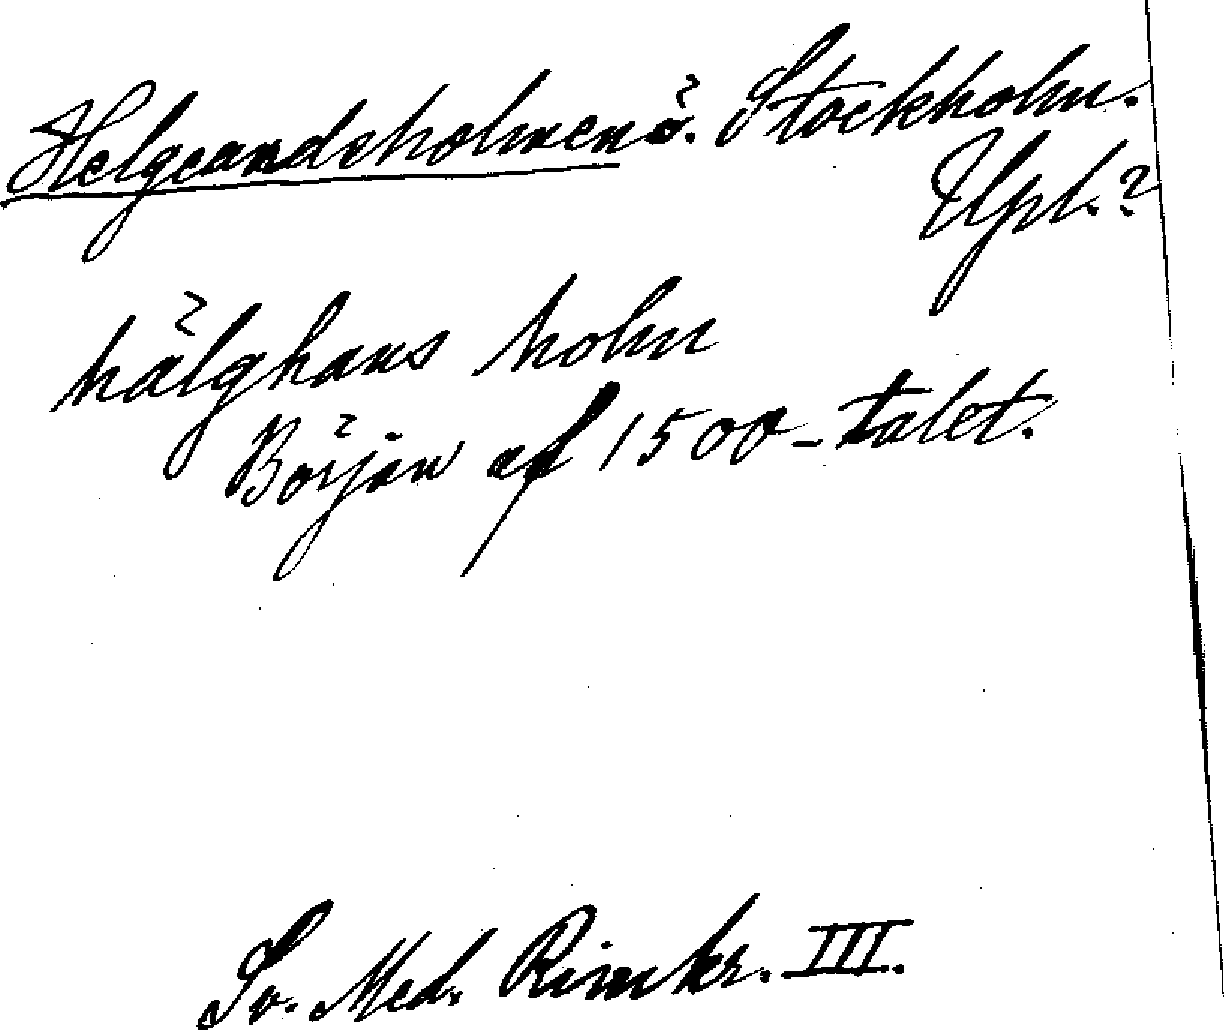 Helgeandsholmen ö. Stockholm.
Upl.?
hälghans holm
Början af 1500-talet.
Sv. Med. Rimkr. III.